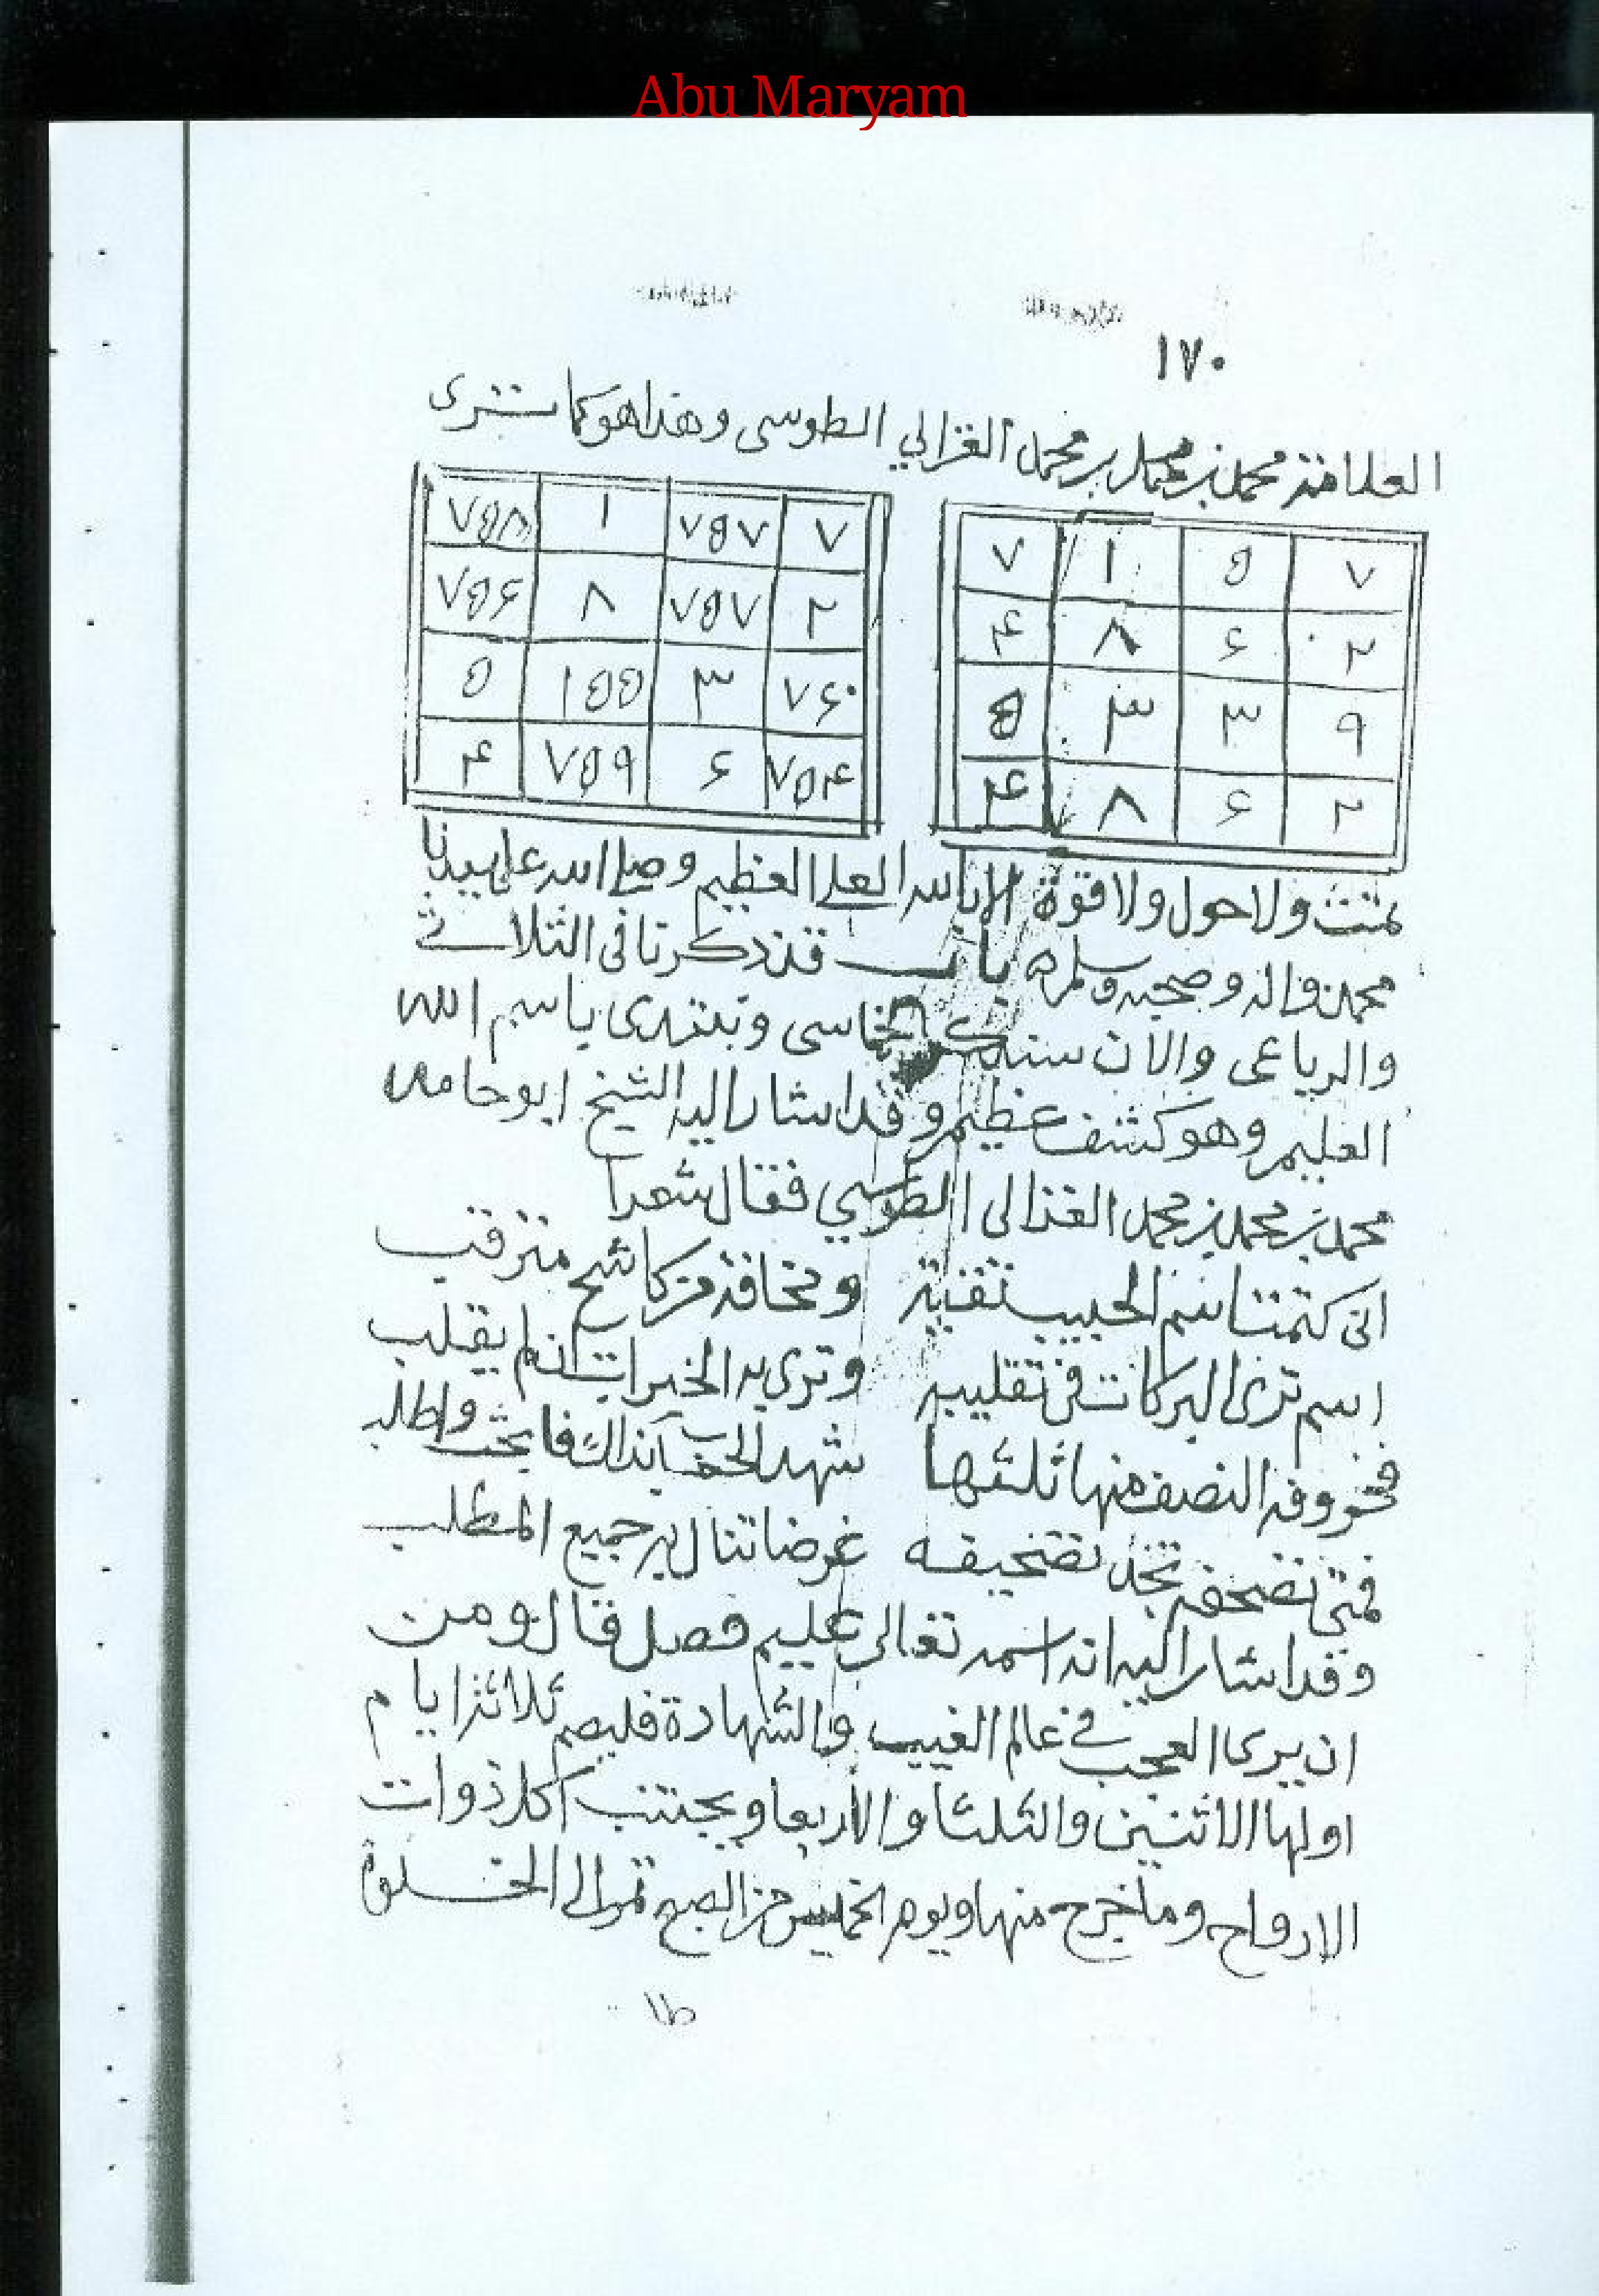 Abu Maryam
١٧٠
العلامة محمد بن محمد بن محمد الغزالي الطوسى وهذا هو كما سترى
٧ ٥ ١ ٧
٢ ۶ ٨ ۴
٩ ٣ ٣ ٥
٢ ۶ ٨ ۴
٧ ٧٥٧ ١ ٧٥٨
٢ ٧٥٧ ٨ ٧٥۶
٧۶٠ ٣ ١٥٥ ٥
٧٥۴ ۶ ٧٥٩ ۴
تمت ولا حول ولا قوة الا بالله العلي العظيم وصلى الله على سيدنا
محمد واله وصحبه وسلم باب قد ذكرنا فى الثلاثى
والرباعى والان سنذكر الخماسى ونبتدى باسم الله
العليم وهو كشف عظيم وقد اشار اليه الشيخ ابو حامد
محمد بن محمد بن محمد الغزالى الطوسي فقال شعرا
انى كتمت اسم الحبيب تقية ومخافة من كاشح مترقب
اسم ترى البركات فى تقليبه وترى به الخيرات ان لم يقلب
النصف منها ثلثها فابحث واطلب
غرضا تنال به جميع المطلب
وقد اشار اليه انه اسمه تعالى عليم فصل قال ومن
ان يرى العجب في عالم الغيب والشهادة فليصم ثلاثة ايام
اولها الاثنين والثلثا والأربعا ويجتنب اكل ذوات
الارواح وما خرج منها ويوم الخميس من الصبح الى الخلوة